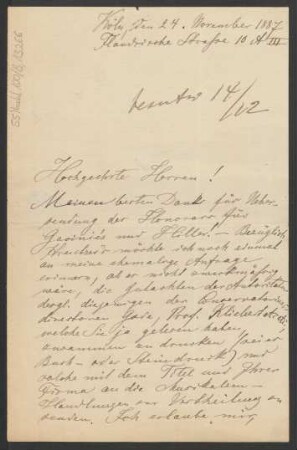 Köln, den 24. November 1887
Flandrische Strasse 10 A III
14/12
Hochgeehrte Herren!
Meinen besten Dank für Ueber-
sendung der Honorare für
Gaviniés und Hiller. — Bezüglich
möchte ich noch einmal
an meine ehemalige Anfrage
erinnern, ob es nicht zweckmässig
wäre, die Gutachten der Autoritäten
dergl. diejenigen der Conservatoriums-
directoren Gade, Prof.
welche Sie ja gelesen haben,
zusammen zu drucken (sei es
Buch- oder Steindruck) und
welche mit dem Titel und Ihrer
Firma an die Musikalien-
Handlungen zur Vertheilung zu
senden. Ich erlaube mir,